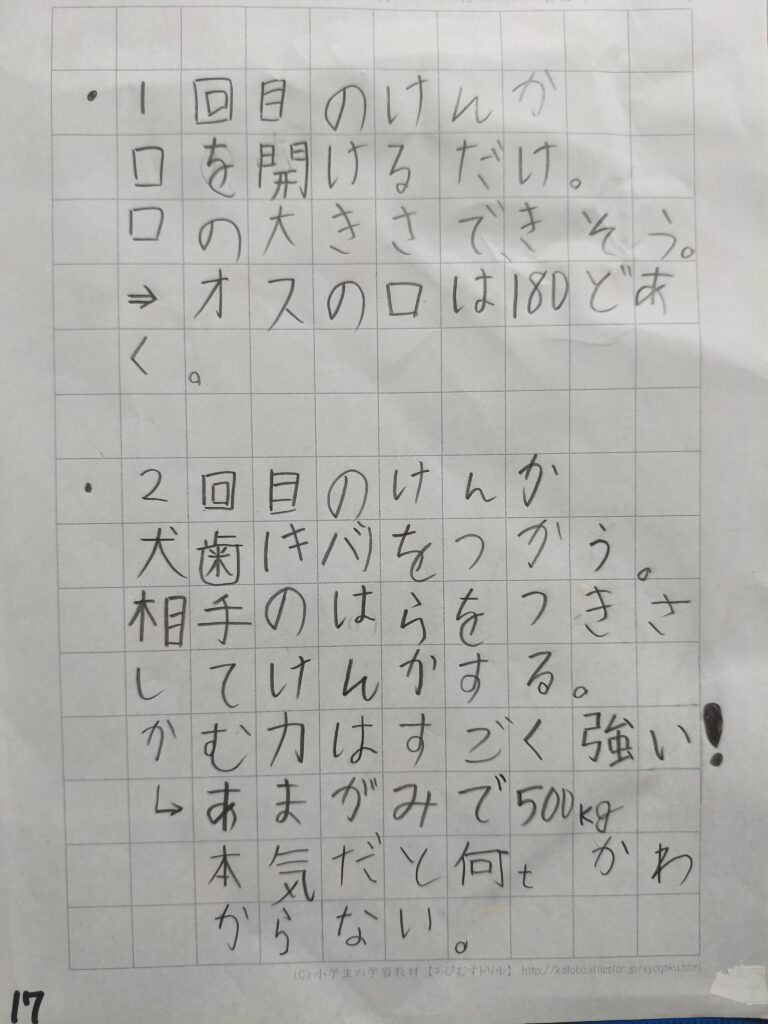 ・1回目のけんか
口を開けるだけ。
口の大きさできそう。
⇒オスの口は180どあ
く。
・2回目のけんか
犬歯(キバ)をつかう。
相手のはらをつきさ
してけんかする。
かむ力はすごく強い!
↳あまがみで500kg
本気だと何tかわ
からない。
(C) 小学生の学習教材【ちびむすドリル】 http://kotoba.littlestar.jp/syogaku.html
17